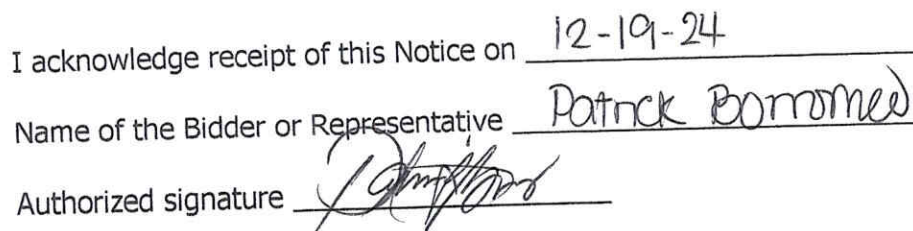 I acknowledge receipt of this Notice on 12-19-24
Name of the Bidder or Representative Patrick Borromeo
Authorized signature